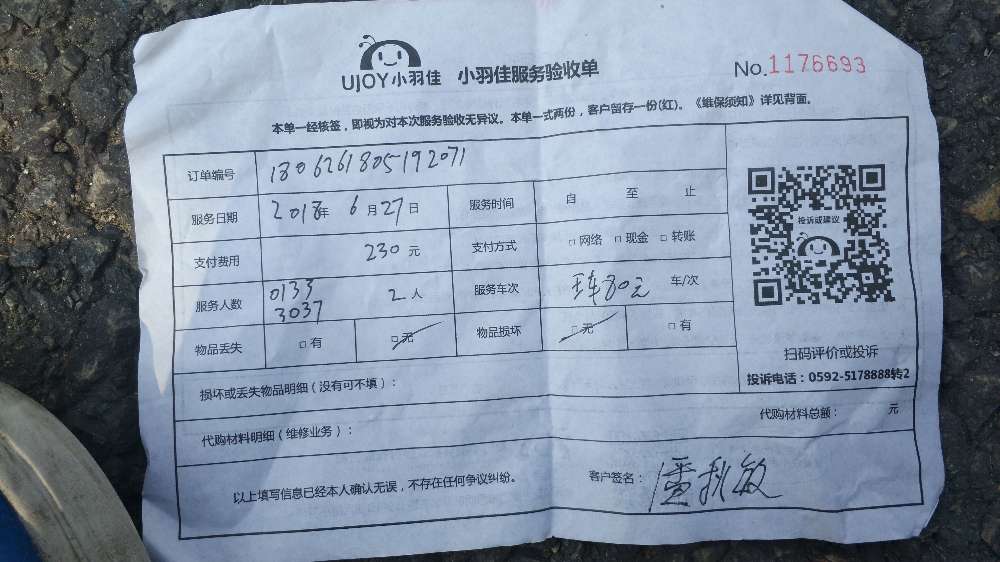 UJOY小羽佳 小羽佳服务验收单 No.1176693
本单一经核签，即视为对本次服务验收无异议。本单一式两份，客户留存一份(红)。《维保须知》详见背面。
订单编号 1806261805192071
服务日期 2018年 6月27日 服务时间 自 至 止
支付费用 230元 支付方式 □网络 □现金 □转账
服务人数 0133 3037 2人 服务车次 80元 车/次
物品丢失 □有 □无 物品损坏 □无 □有
损坏或丢失物品明细（没有可不填）：
代购材料明细（维修业务）： 代购材料总额： 元
以上填写信息已经本人确认无误，不存在任何争议纠纷。 客户签名：
投诉或建议
扫码评价或投诉
投诉电话：0592-5178888转2